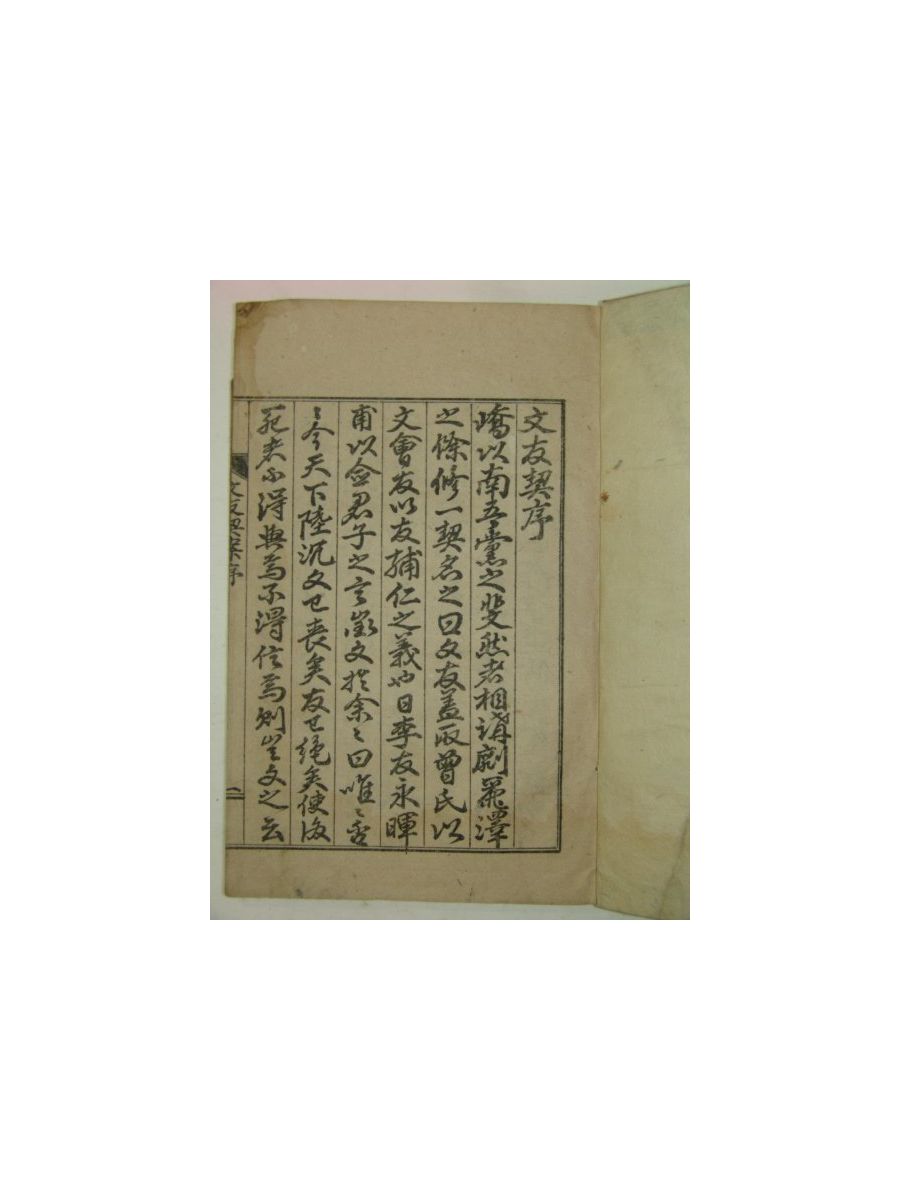 文友契序
嶠以南吾黨之斐然者相講劘麗澤
之餘修一契名之曰文友蓋取曾氏以
文會友以友輔仁之義也日李友永暉
甫以僉君子之言徵文於余〻曰唯〻否
〻今天下陸沉文已喪矣友已絕矣使後
死者不得與焉不得信焉則豈文之云
文友契案序
一